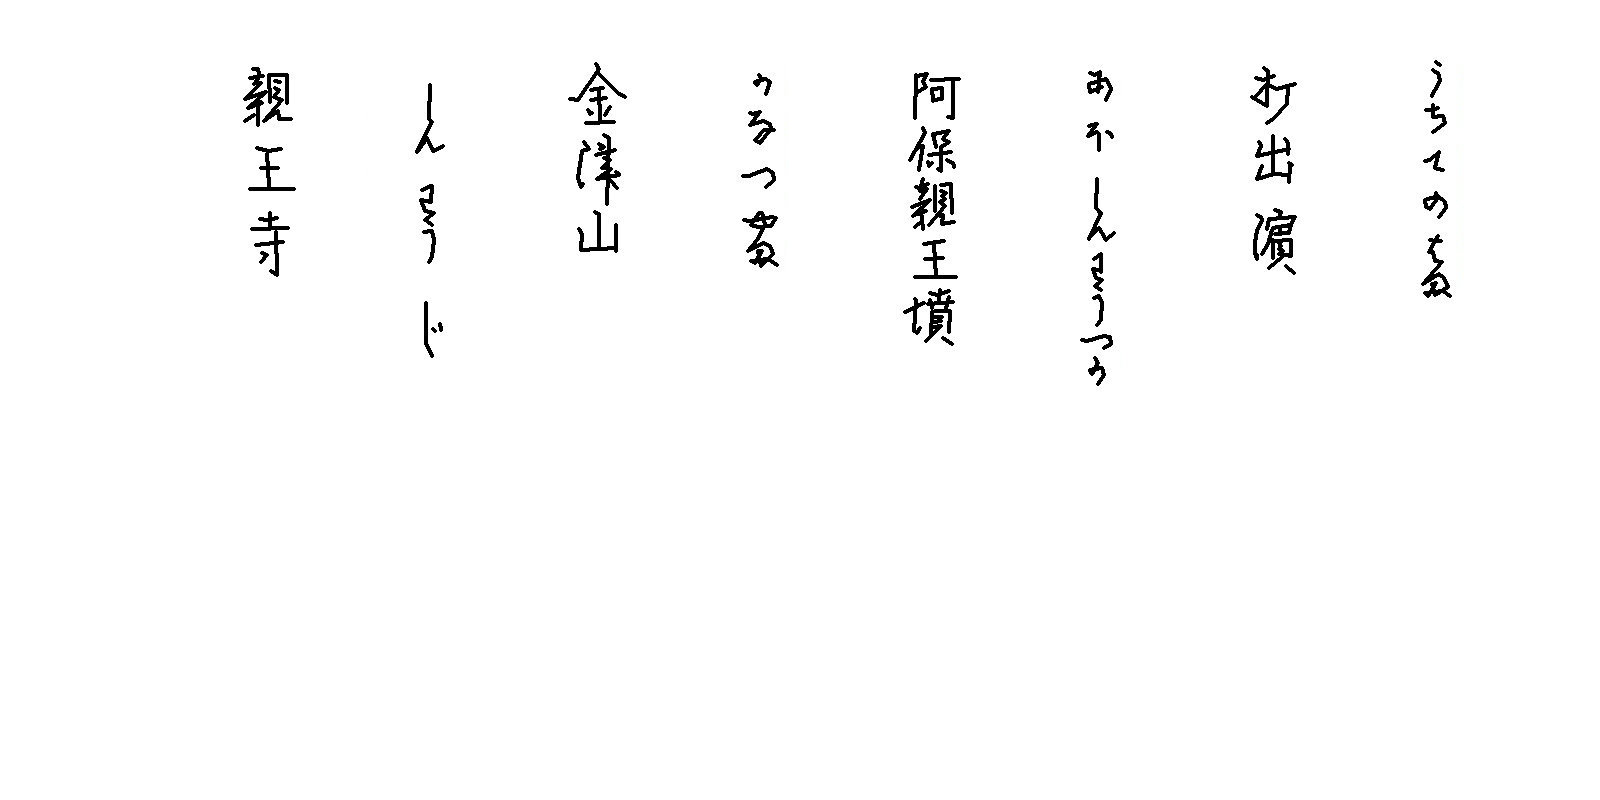 うちでのはま
打出濱
あほしんわうつか
阿保親王墳
かなつやま
金津山
しんわうじ
親王寺